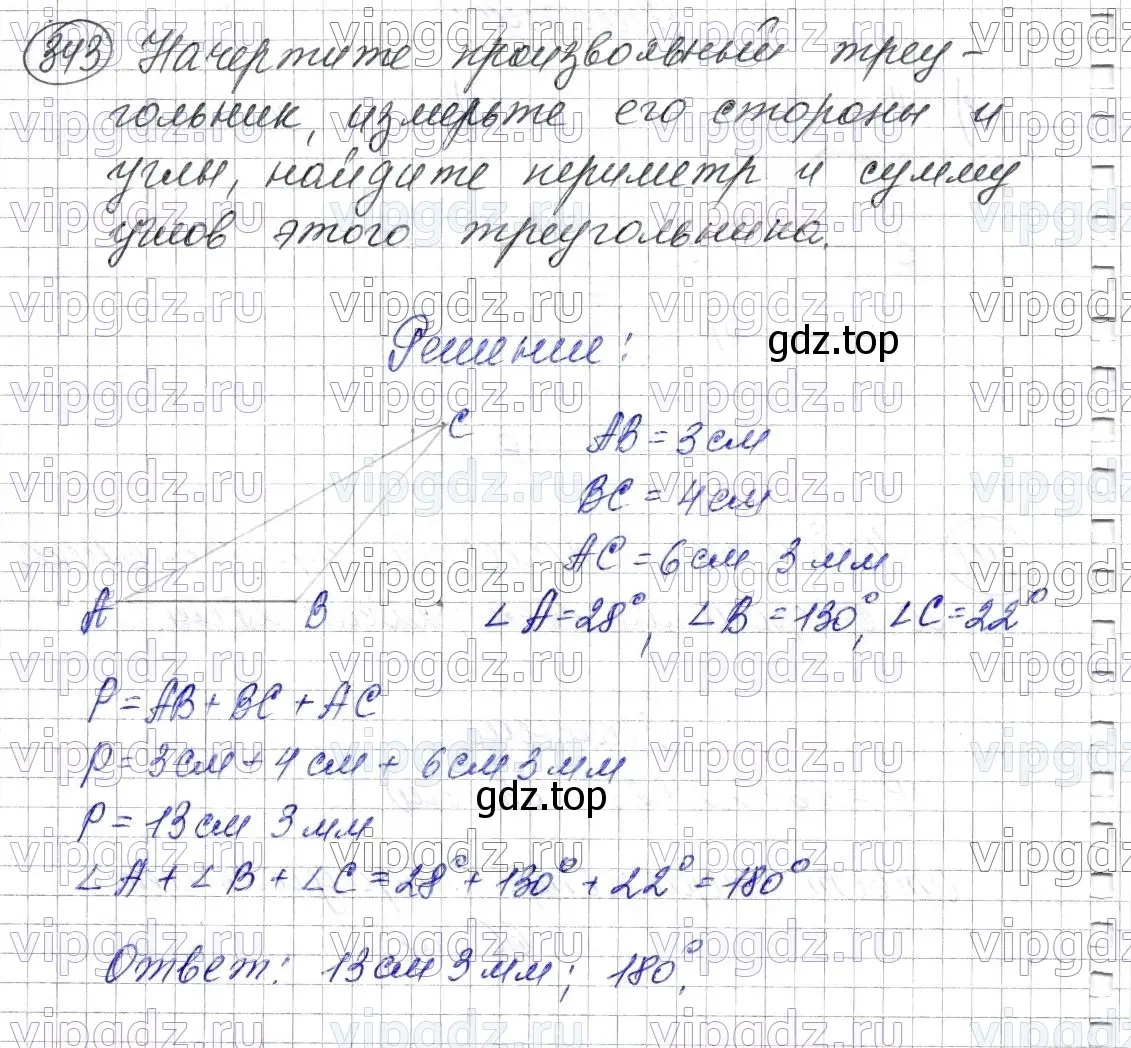 343 Начертите произвольный треу-
гольник, измерьте его стороны и
углы, найдите периметр и сумму
углов этого треугольника.
Решение:
gdz.top
C
AB = 3 см
BC = 4 см
AC = 6 см 3 мм
A B
∠A = 28°, ∠B = 130°, ∠C = 22°
P = AB + BC + AC
P = 3 см + 4 см + 6 см 3 мм
gdz.top
P = 13 см 3 мм
∠A + ∠B + ∠C = 28° + 130° + 22° = 180°
Ответ: 13 см 3 мм; 180°.
vipgdz.ru